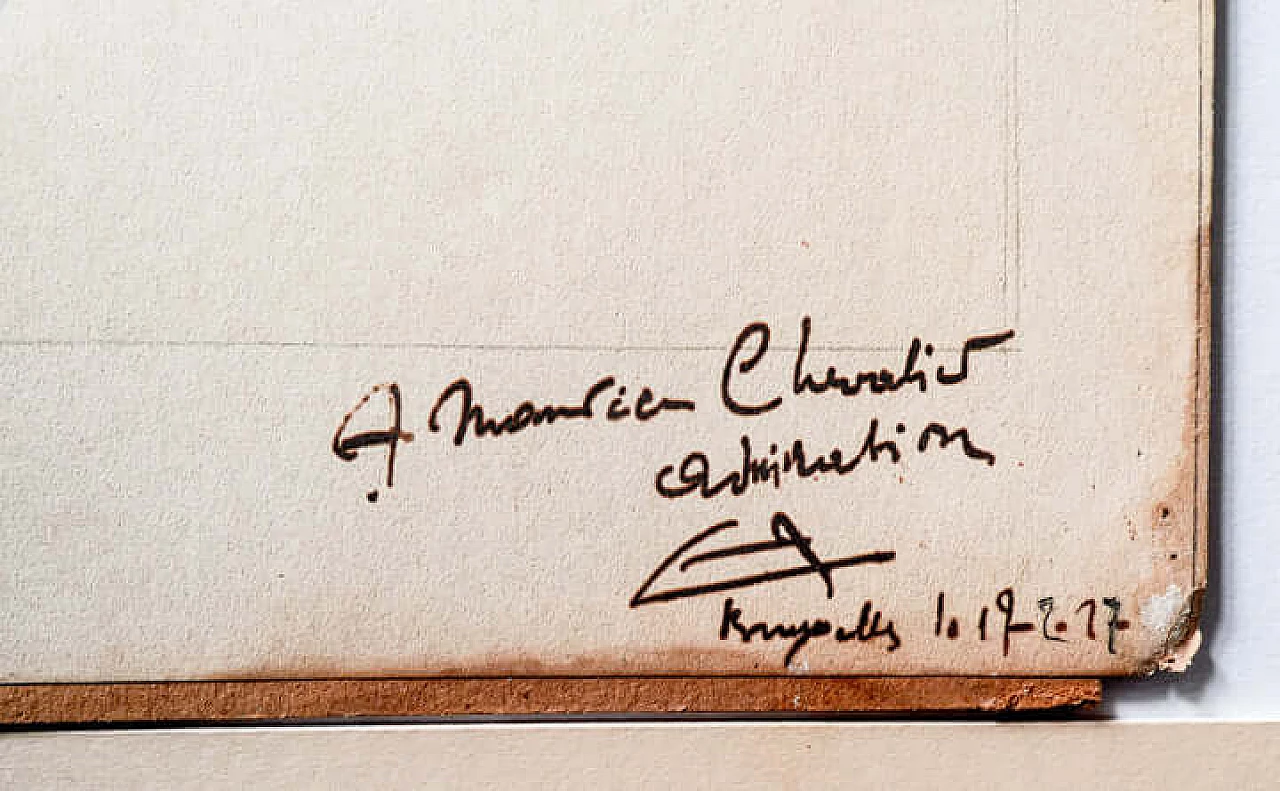 A Maurice Chevalier
admiration
Bruxelles le 19-2-17